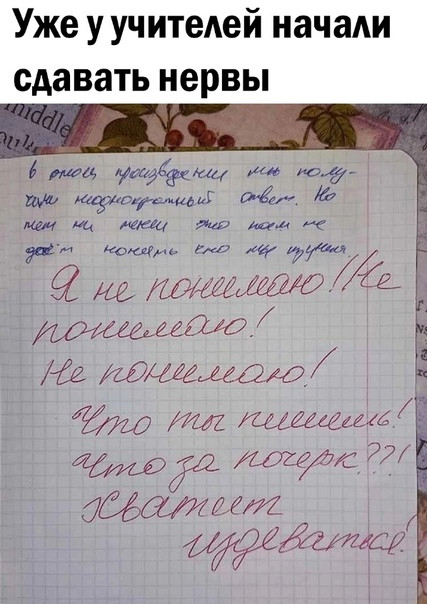 Уже у учителей начали
сдавать нервы
middle
в этом произведении мы полу-
чили неоднократный ответ. Но
тем ни менее это нам не
даёт понять кто мы
Я не понимаю! Не
понимаю!
Не понимаю!
Что ты пишешь!
Что за почерк??!
Хватит
издеваться!